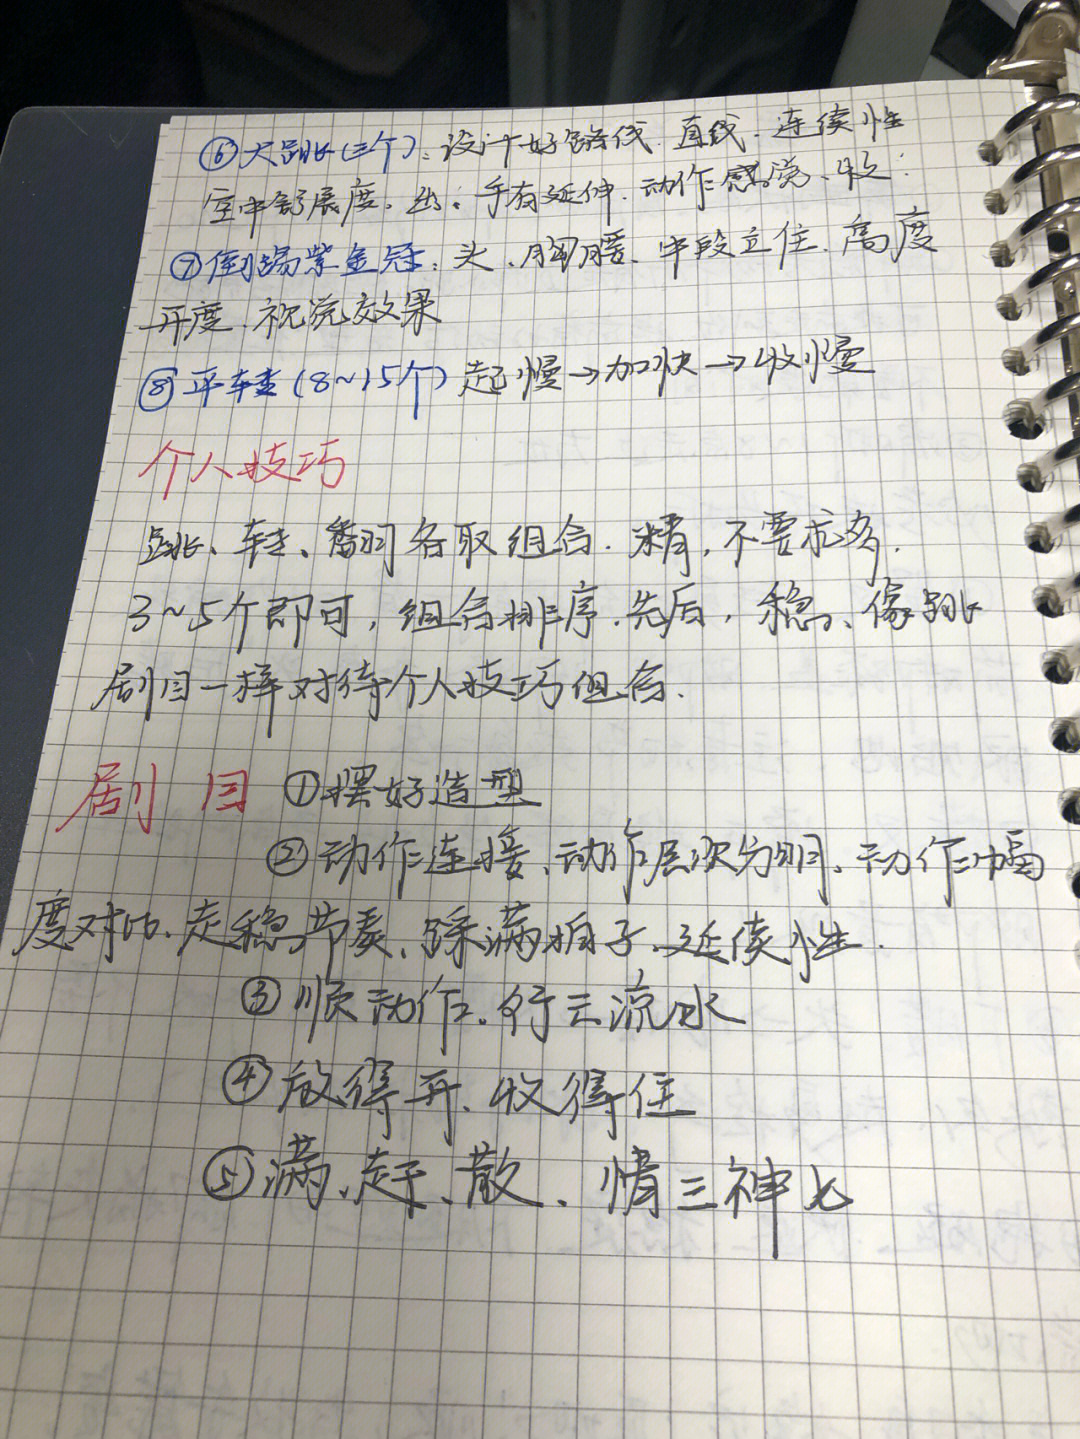 ⑥大跳(三个)：设计好路线.直线.连续性
空中舒展度.出：手有延伸.动作感觉.收：
⑦倒踢紫金冠：头、胸腰、中段立住.高度
开度.视觉效果
⑧平转(8~15个)起慢→加快→收慢
个人技巧
跳、转、翻各取组合.精,不要求多.
3~5个即可,组合排序.先后,稳、像跳
剧目一样对待个人技巧组合.
剧目 ①摆好造型
②动作连接、动作层次分明、动作幅
度对比.走稳节奏、踩满拍子.延续性.
③顺动作.行云流水
④放得开、收得住
⑤满、赶、散、情三神七